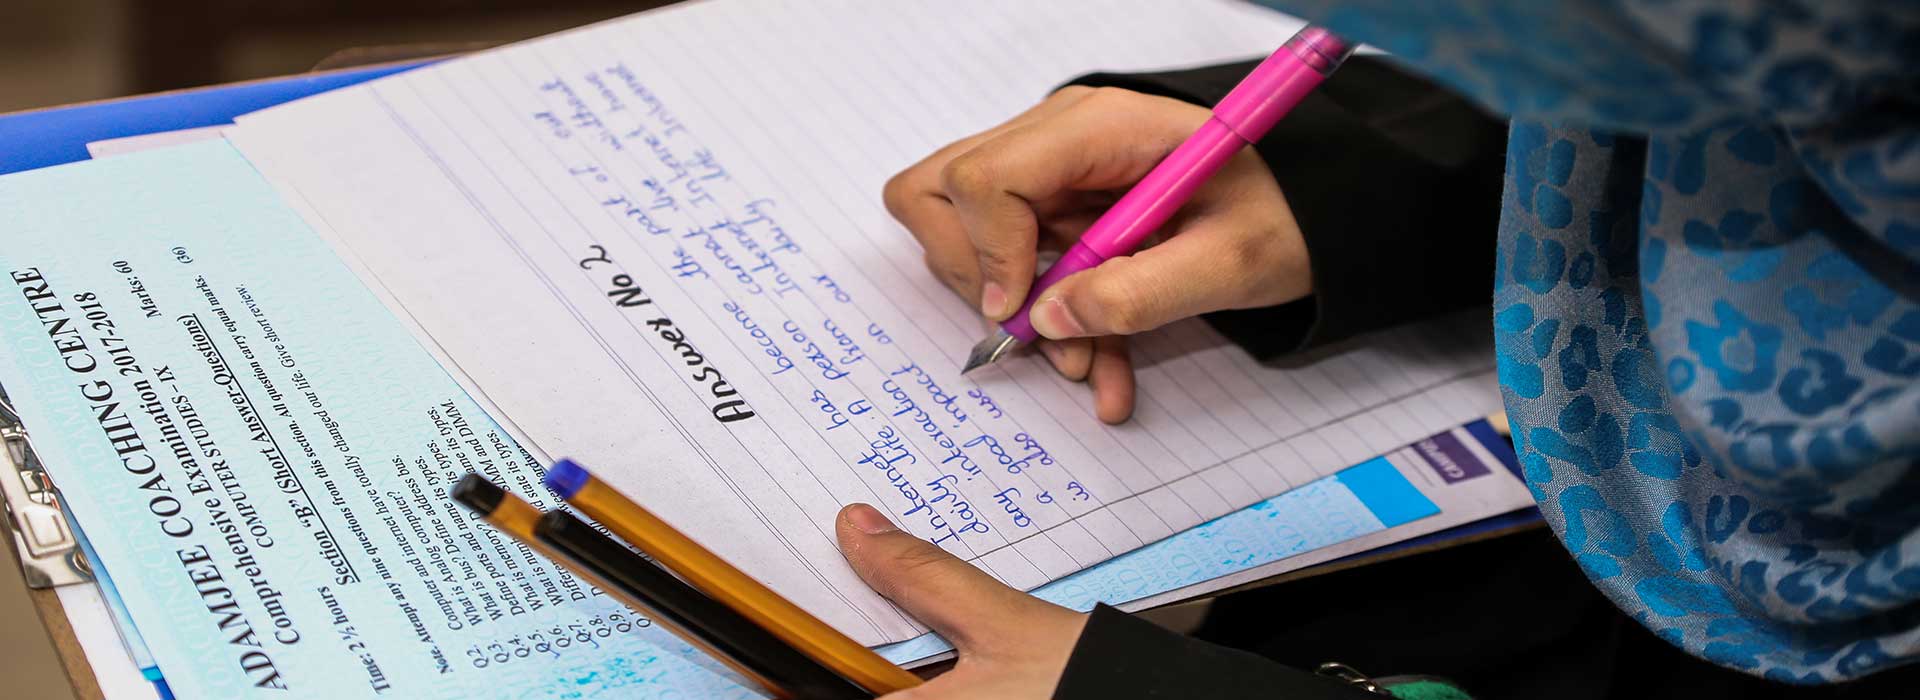 ADAMJEE COACHING CENTRE
Comprehensive Examination 2017-2018
COMPUTER STUDIES – IX
Time: 2 ½ hours
Marks: 60
Section "B" (Short Answer-Questions)
(36)
Note: Attempt any nine questions from this section. All question carry equal marks.
Q2. Computer and internet have totally changed our life. Give short review.
Q3. What is Analog computer?
Q.4. What is bus? Define address bus.
Q.5. Define ports and name its types.
Q.6. What is memory?
Q.7. What is
Q.8.
Q.9.
Answer No 2
Internet has become the part of our
daily life. A person cannot live without
any interaction from Internet. Internet have
a good impact on our daily life. Internet
is also use
CAMPUS